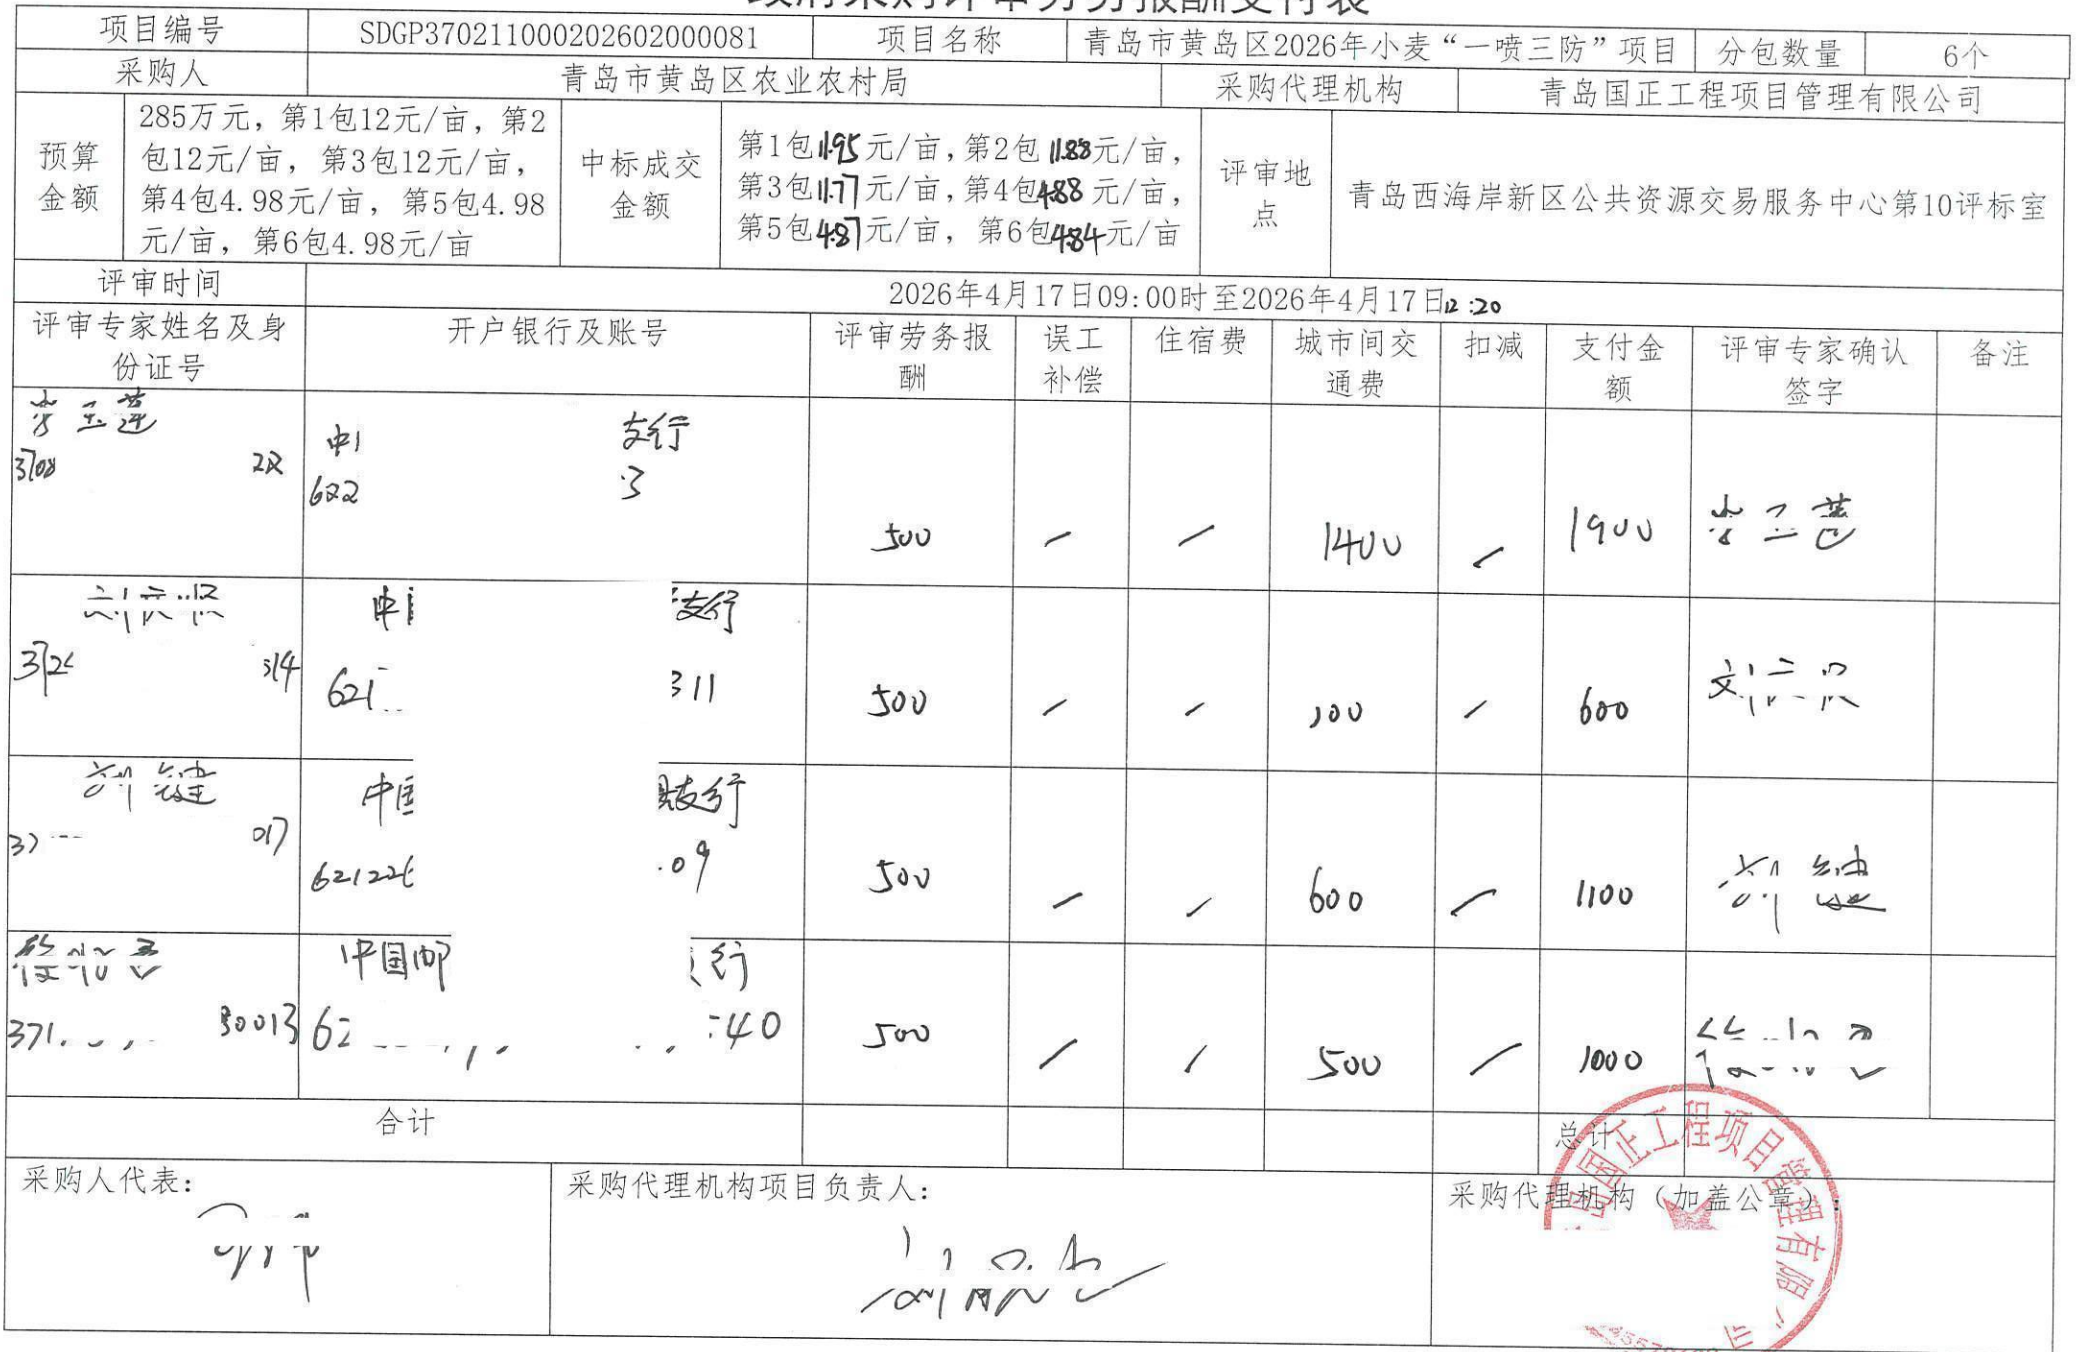 政府采购评审劳务报酬支付表
项目编号 SDGP370211000202602000081 项目名称 青岛市黄岛区2026年小麦“一喷三防”项目 分包数量 6个
采购人 青岛市黄岛区农业农村局 采购代理机构 青岛国正工程项目管理有限公司
预算金额
285万元，第1包12元/亩，第2
包12元/亩，第3包12元/亩，
第4包4.98元/亩，第5包4.98
元/亩，第6包4.98元/亩
中标成交金额
第1包11.95元/亩，第2包11.88元/亩，
第3包11.77元/亩，第4包4.88元/亩，
第5包4.87元/亩，第6包4.84元/亩
评审地点
青岛西海岸新区公共资源交易服务中心第10评标室
评审时间 2026年4月17日09:00时至2026年4月17日12:20
评审专家姓名及身份证号 开户银行及账号 评审劳务报酬 误工补偿 住宿费 城市间交通费 扣减 支付金额 评审专家确认签字 备注
支行
3708 622 3
500 — — 1400 — 1900
支行
314 621 311
500 — — 100 — 600
刘健 中国 支行
37 017 621226 09
500 — — 600 — 1100 刘健
中国邮 行
371 30013 62 40
500 — — 500 — 1000
合计 总计
采购人代表：
采购代理机构项目负责人：
采购代理机构（加盖公章）：
岛国正工程项目管理有限